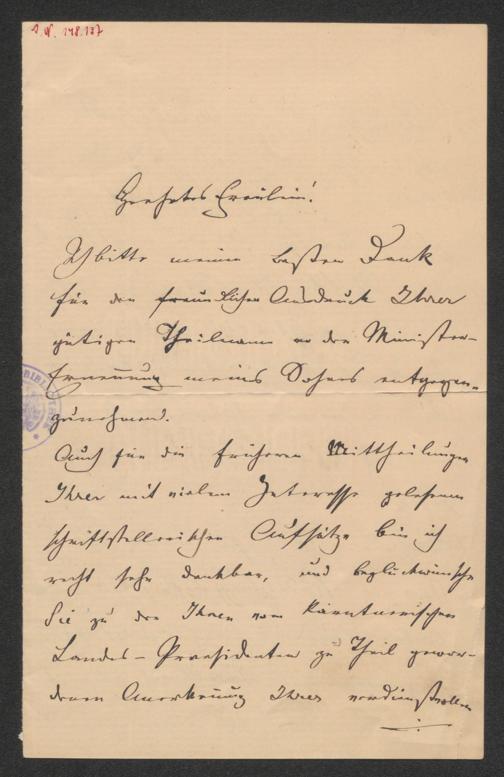 J. N. 148.137
Geehrtes Fräulein!
Ich bitte meinen besten Dank
für den freundlichen Ausdruck Ihrer
gütigen Theilname an der Minister-
Ernennung meines Sohnes entgegen-
zunehmen.
Auch für die früheren Mittheilungen
Ihrer mit vielem Interesse gelesenen
schriftstellerischen Aufsätze bin ich
recht sehr dankbar, und beglückwünsche
Sie zu der Ihnen vom kärntnerischen
Landes-Praesidenten zu Theil gewor-
denen Anerkennung Ihres verdienstvollen